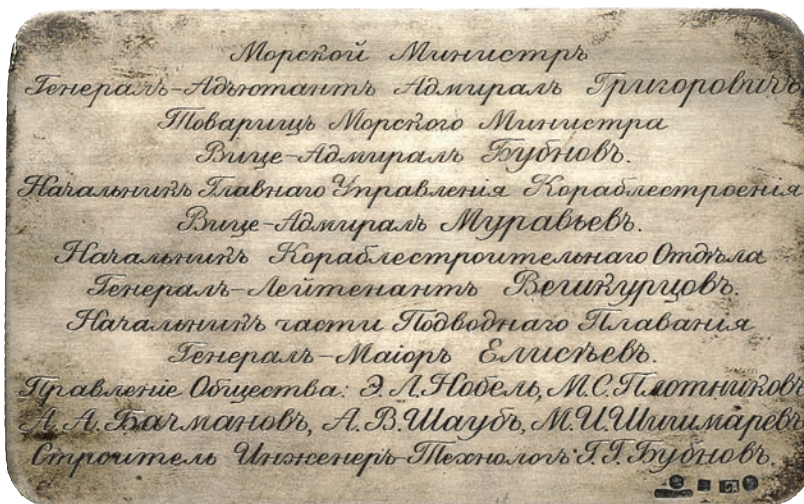 Морской Министръ
Генералъ-Адъютантъ Адмиралъ Григоровичъ
Товарищъ Морского Министра
Вице-Адмиралъ Бубновъ.
Начальникъ Главнаго Управленія Кораблестроенія
Вице-Адмиралъ Муравьевъ.
Начальникъ Кораблестроительнаго Отдѣла
Генералъ-Лейтенантъ Вешкурцовъ.
Начальникъ части Подводнаго Плаванія
Генералъ-Маіоръ Елисѣевъ.
Правленіе Общества: Э.Л.Нобель, М.С.Плотниковъ
А.А.Бачмановъ, А.В.Шаубъ, М.И.Шишмаревъ
Строитель Инженеръ-Технологъ: Г.Г.Бубновъ.